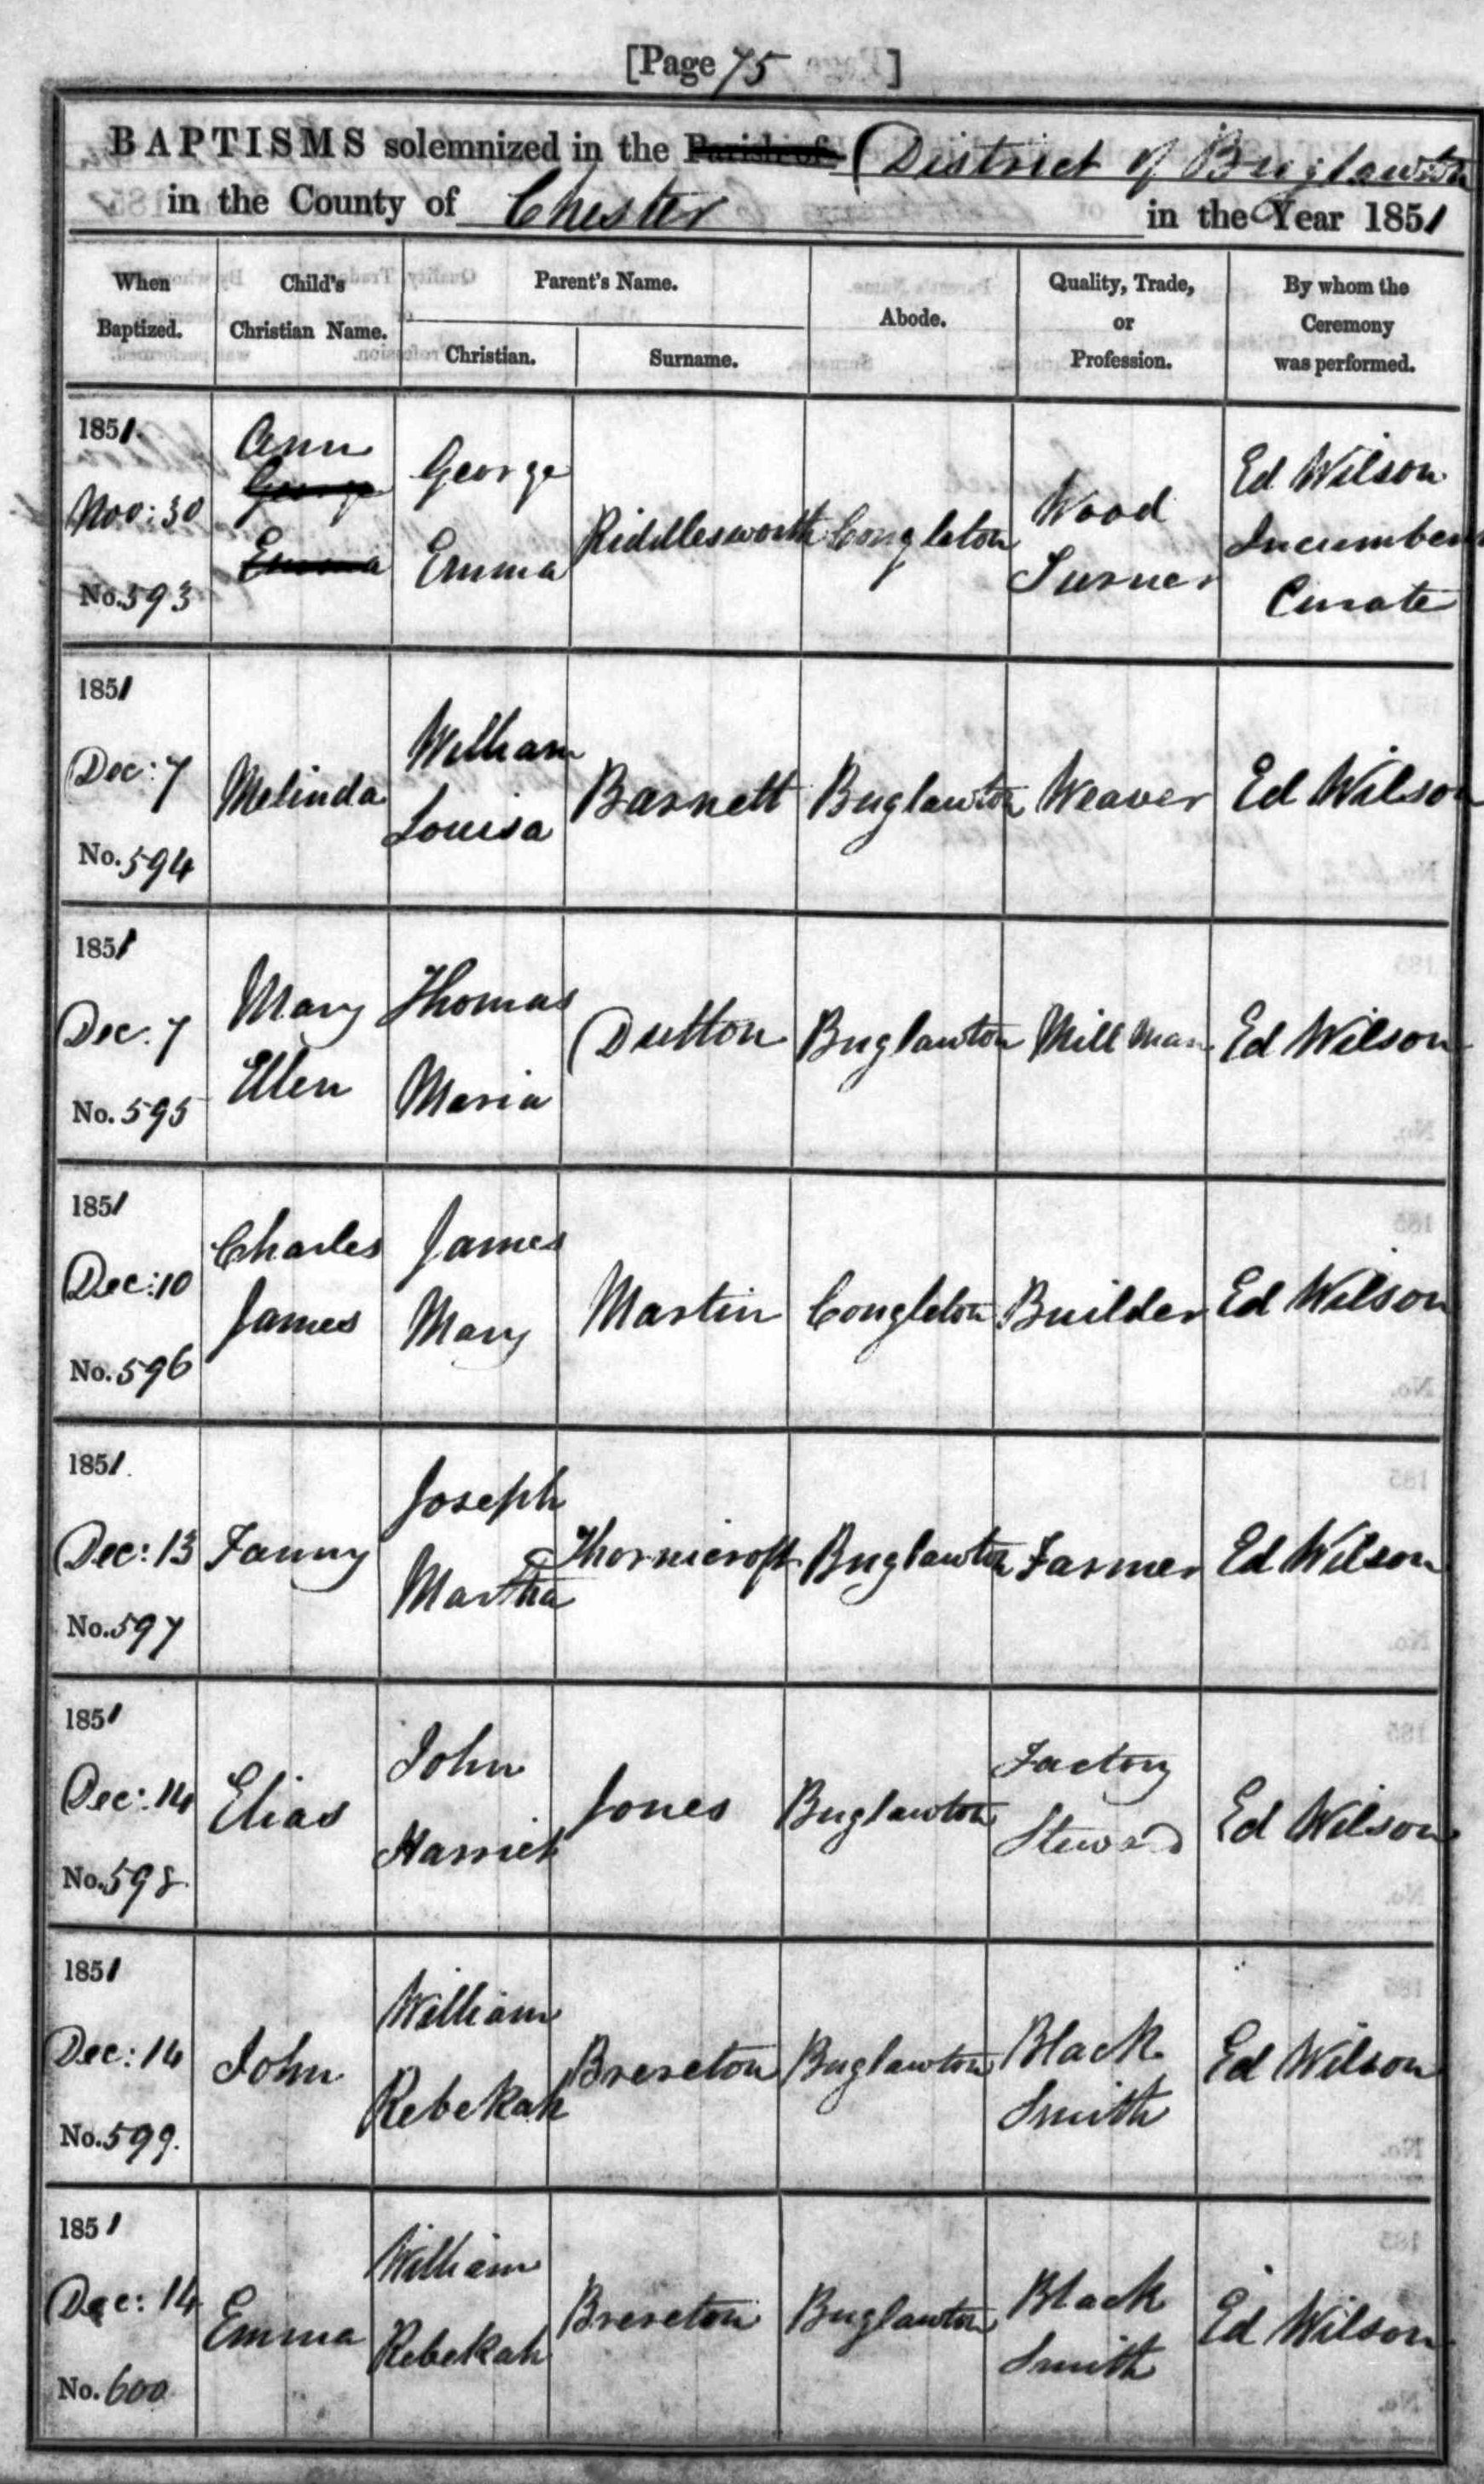 [Page 75 ]
BAPTISMS solemnized in the Parish of District of Buglawton
in the County of Chester in the Year 1851
When Baptized.
Child's Christian Name.
Parent's Name.
Christian.
Surname.
Abode.
Quality, Trade, or Profession.
By whom the Ceremony was performed.
1851.
Nov: 30
No. 593
Ann
George
Emma
George
Emma
Riddlesworth
Congleton
Wood
Turner
Ed Wilson
Incumbent
Curate
1851
Dec: 7
No. 594
Melinda
William
Louisa
Barnett
Buglawton
Weaver
Ed Wilson
1851
Dec. 7
No. 595
Mary
Ellen
Thomas
Maria
Dutton
Buglawton
Mill Man
Ed Wilson
1851
Dec: 10
No. 596
Charles
James
James
Mary
Martin
Congleton
Builder
Ed Wilson
1851.
Dec: 13
No. 597
Fanny
Joseph
Martha
Thornicroft
Buglawton
Farmer
Ed Wilson
1851
Dec: 14
No. 598
Elias
John
Harriet
Jones
Buglawton
Factory
Steward
Ed Wilson
1851
Dec: 14
No. 599.
John
William
Rebekah
Brereton
Buglawton
Black
Smith
Ed Wilson
1851
Dec: 14
No. 600
Emma
William
Rebekah
Brereton
Buglawton
Black
Smith
Ed Wilson